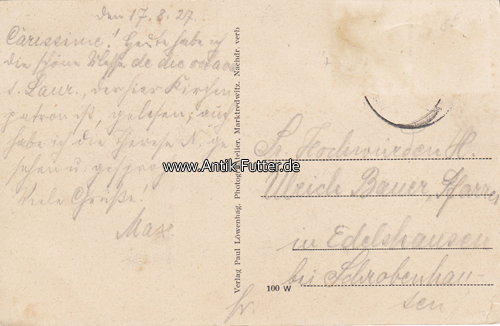 den 17. 8. 27.
Carissime! Heute habe ich
die schöne Messe de die octava
s. Laur., der hier Kirchen
patron ist, gelesen; auch
habe ich die
Viele Grüße!
Max
Verlag Paul Löwenhag, Photograph. Atelier, Marktredwitz. Nachdr. verb
www.Antik-Futter.de
Sr. Hochwürden H.
Bauer, Pfarrer
in Edelshausen
bei Schrobenhau-
sen
100 W